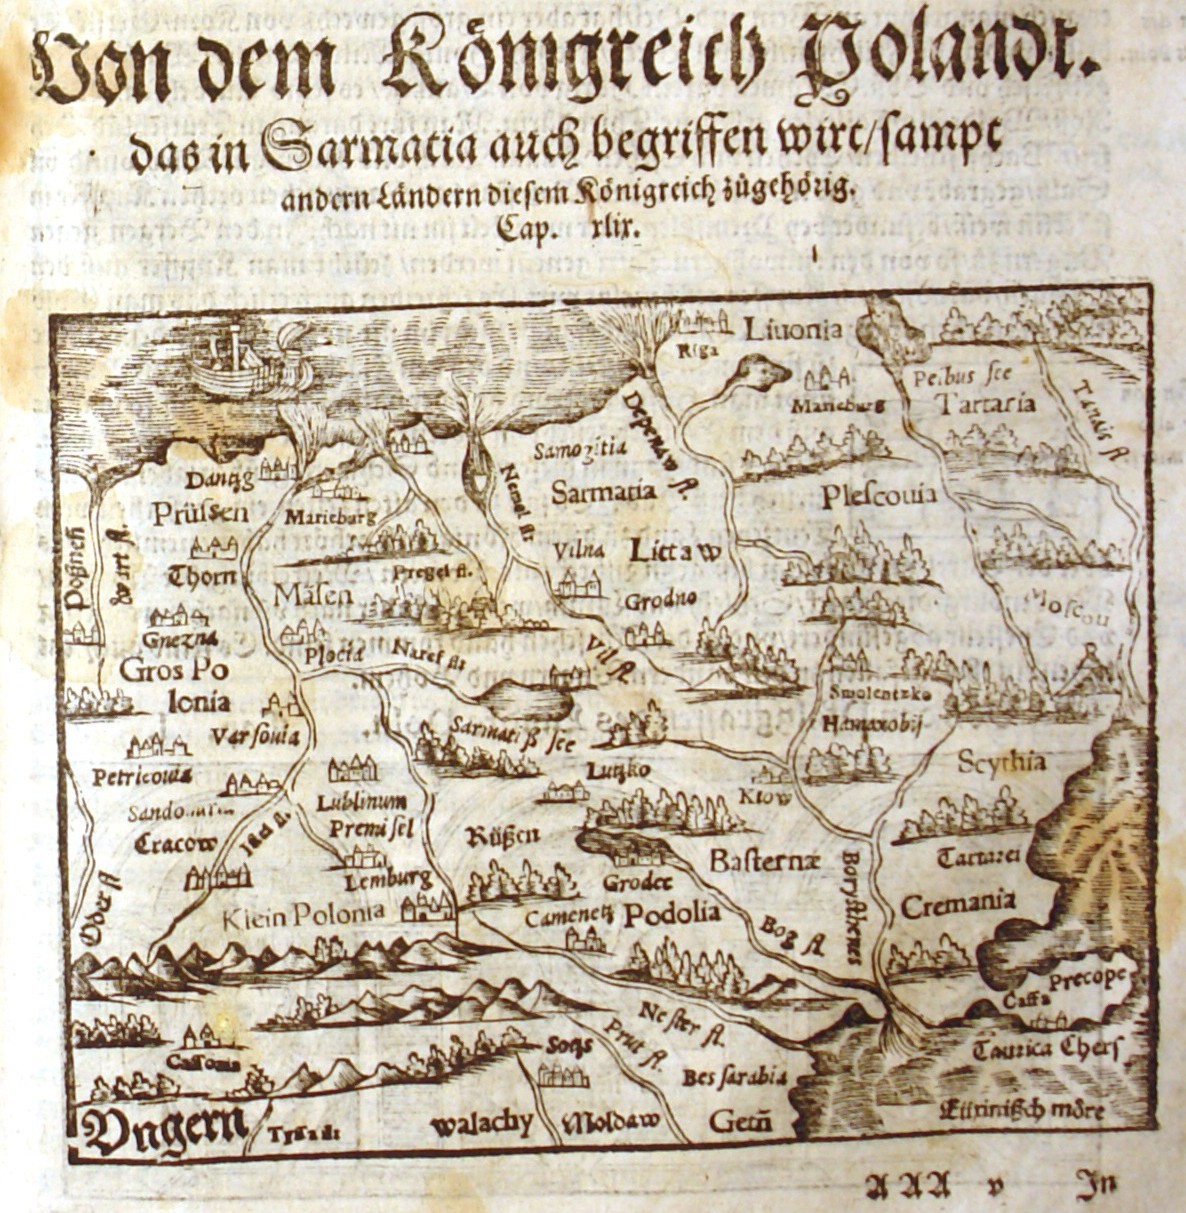 Von dem Königreich Polandt.
das in Sarmatia auch begriffen wirt/sampt
andern Ländern diesem Königreich zůgehörig.
Cap. xlix.
Riga
Liuonia
Peibus see
Tartaria
Tanais fl.
Marieburg
Depenaw fl.
Samozitia
Sarmatia
Plescouia
Dantzg
Prüssen
Marieburg
Nemel fl.
Vilna
Littaw
Poßneñ
Thorn
Pregel fl.
Masen
Grodno
Moscou
Gnezna
Plocia
Naref fl.
Vil fl.
Gros Po
lonia
Smolentzko
Hamaxobij
Varsouia
Sarmatiß see
Scythia
Petricouia
Lutzko
Kiow
Lublinum
Cracow
Premisel
Rüßen
Basternæ
Tartarei
Lemburg
Grodec
Oder fl
Klein Polonia
Camenetz
Podolia
Borysthenes
Cremania
Bog fl
Precope
Caffa
Nester fl.
Prut fl.
Taurica Chers
Cassouia
Soczs
Bessarabia
Vngern
walachy
Moldaw
Geteñ
Euxinißch möre
A A A v
In